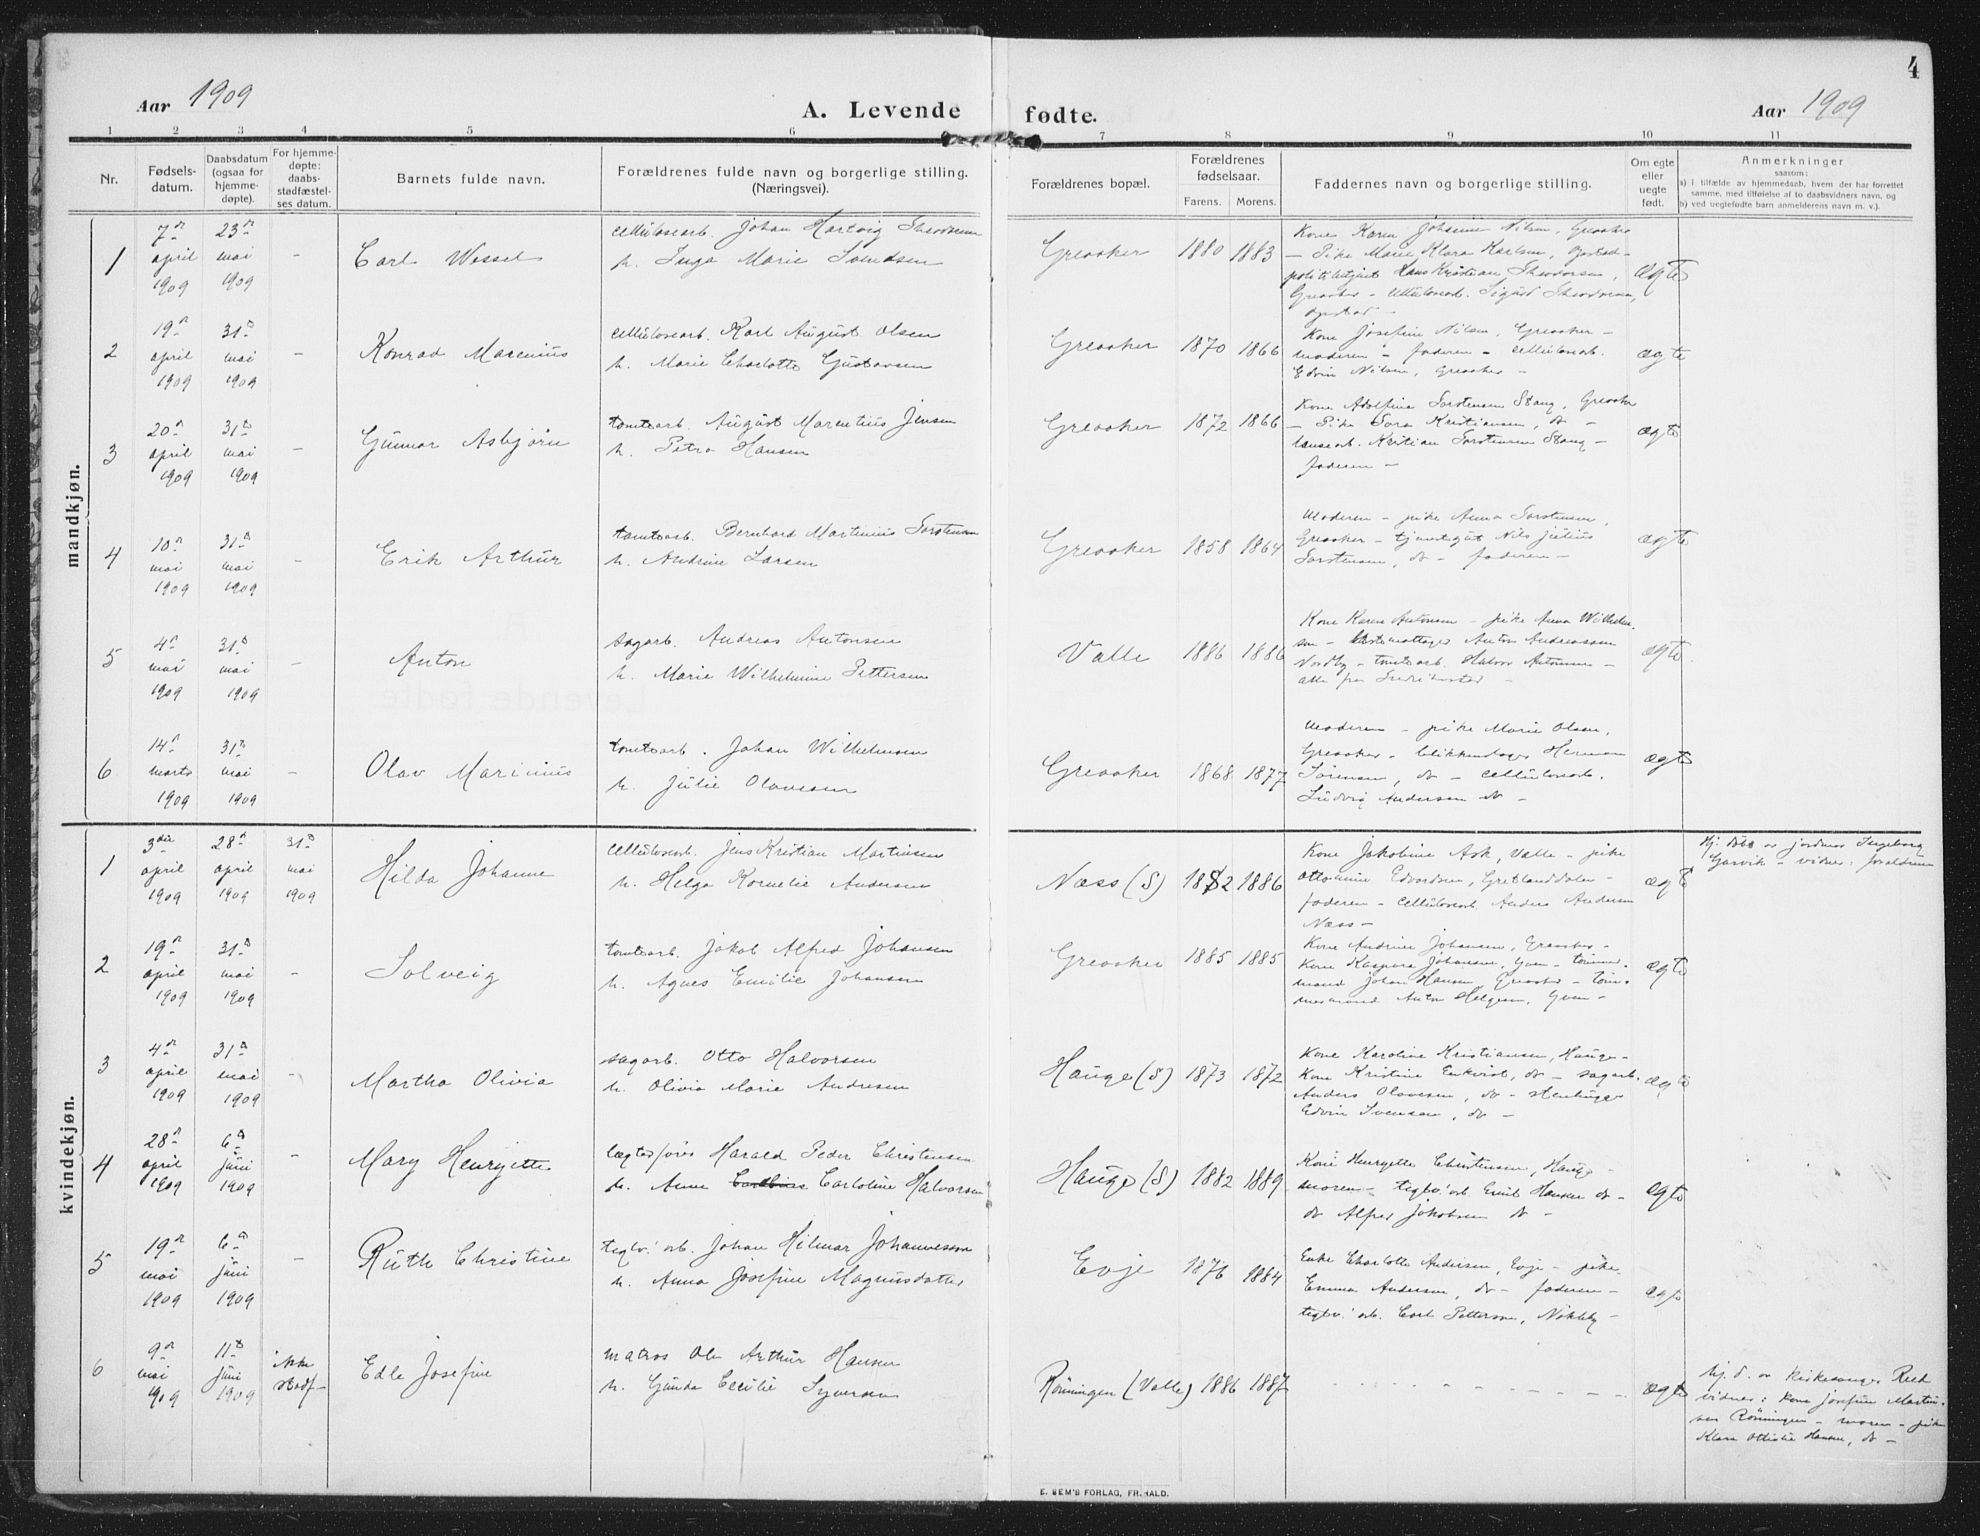 4
Aar 1909
A. Levende fødte.
Aar 1909
1 2 3 4 5 6 7 8 9 10 11
Nr.
Fødsels-
datum.
Daabsdatum
(ogsaa for
hjemme-
døpte).
For hjemme-
døpte:
daabs-
stadfæstel-
ses datum.
Barnets fulde navn.
Forældrenes fulde navn og borgerlige stilling.
(Næringsvei).
Forældrenes bopæl.
Forældrenes
fødselsaar.
Farens. Morens.
Faddernes navn og borgerlige stilling.
Om egte
eller
uegte
født.
Anmerkninger
saasom:
a) i tilfælde av hjemmedaab, hvem der har forrettet
samme, med tilføielse af to daabsvidners navn, og
b) ved uegtefødte barn anmelderens navn m. v.).
mandkjøn.
1
7de april 1909
23de mai 1909
-
Carl Wessel
cellulosearb. Johan Hartvig Theodorsen
h. Inga Marie Svendsen
Greaaker
1880 1883
Kone Karen Johanne Nilsen, Greaaker
- Pike Marie Klara Karlsen, Opstad -
politibetjent Hans Kristian Theodorsen,
Greaaker - cellulosearb. Sigurd Theodorsen,
Opstad -
ægte
2
19de april 1909
31te mai 1909
-
Konrad Marenius
cellulosearb. Karl August Olsen
h. Marie Charlotte Gustavsen
Greaaker
1870 1866
Kone Josefine Nilsen, Greaaker -
moderen - faderen - cellulosearb.
Edvin Nilsen, Greaaker -
ægte
3
20de april 1909
31te mai 1909
Gunnar Asbjørn
tomtearb. August Marentius Jensen
h. Petra Hansen
Greaaker
1872 1866
Kone Adolfine Torstensen Stang, Greaaker
- Pike Tora Kristiansen, do -
Kristian Torstensen Stang -
faderen -
ægte
4
10de mai 1909
31te mai 1909
-
Erik Arthur
tomtearb. Bernhard Martinius Torstensen
h. Andrine Larsen
Greaaker
1858 1864
Moderen - pike Anna Torstensen,
Greaaker - tjenstegut Nils Julius
Torstensen, do - faderen -
ægte
5
4de mai 1909
31te mai 1909
-
Anton
sagarb. Andreas Antonsen
h. Marie Wilhelmine Pettersen
Valle
1886 1886
Kone Karen Antonsen - pike Anna Wilhelm-
sen - Anton Andreassen
Nordby - tomtearb. Halvor Antonsen -
alle fra Fredrikstad -
ægte
6
14de marts 1909
31te mai 1909
-
Olav Marinius
tomtearb. Johan Wilhelmsen
h. Julie Olavesen
Greaaker
1868 1877
Moderen - pike Marie Olsen,
Greaaker - blikkenslager Herman
Sørensen, do - cellulosearb.
Ludvig Andersen do -
ægte
kvindekjøn.
1
3die april 1909
28de april 1909
31te mai 1909
Hilda Johanne
cellulosearb. Jens Kristian Martinsen
h. Helga Kornelie Andersen
Næss (S)
1882 1886
Kone Jakobine Ask, Valle - pike
Ottomine Edvardsen, Gretlanddalen -
faderen - cellulosearb. Anders Andersen
Næss -
ægte
Hj. døbt av jordmor Ingeborg
Gasvik - vidner: forældrene
2
19de april 1909
31te mai 1909
-
Solveig
tomtearb. Jakob Alfred Johansen
h. Agnes Emilie Johansen
Greaaker
1885 1885
Kone Andrine Johansen, Greaaker -
Kone Kaspara Johansen, Yven - tømmer-
mand Johan Hansen, Greaaker - tøm-
mermand Anton Helgesen, Yven -
ægte
3
4de april 1909
31te mai 1909
-
Martha Olivia
sagarb. Otto Halvorsen
h. Olivia Marie Andresen
Hauge (S)
1873 1872
Kone Karoline Kristiansen, Hauge -
Kone Kristine Enkvist, do - sagarb.
Anders Olavesen, do - stenhugger
Edvin Svensen, do -
ægte
4
28de april 1909
6te juni 1909
-
Mary Henryette
lægterfører Harald Peder Christensen
h. Anna Caroline Halvorsen
Hauge (S)
1882 1889
Kone Henryette Christensen, Hauge -
moren - teglv.arb. Emil Hansen do -
do Alfred Jakobsen do -
ægte
5
19de mai 1909
6te juni 1909
-
Ruth Christine
teglv. arb. Johan Hilmar Johannesson
h. Anna Josefine Magnusdatter
Evje
1876 1884
Enke Charlotte Andersen, Evje - pike
Emma Andersen, do - faderen -
teglv. arb. Carl Petterson, Nøkleby -
ægte
6
9de mai 1909
11te juni 1909
ikke
stadf -
Edle Josefine
matros Ole Arthur Hansen
h. Gunda Cecilie Syversen
Rønningen (Valle)
1886 1887
- - - - - - - - - -
ægte
hj. d. av kirkesanger Rud
vidner: kone Josefine Martin-
sen Rønningen - moren - pike
Klara Ottilie Hansen, do -
E. SEM'S FORLAG, FR.HALD.